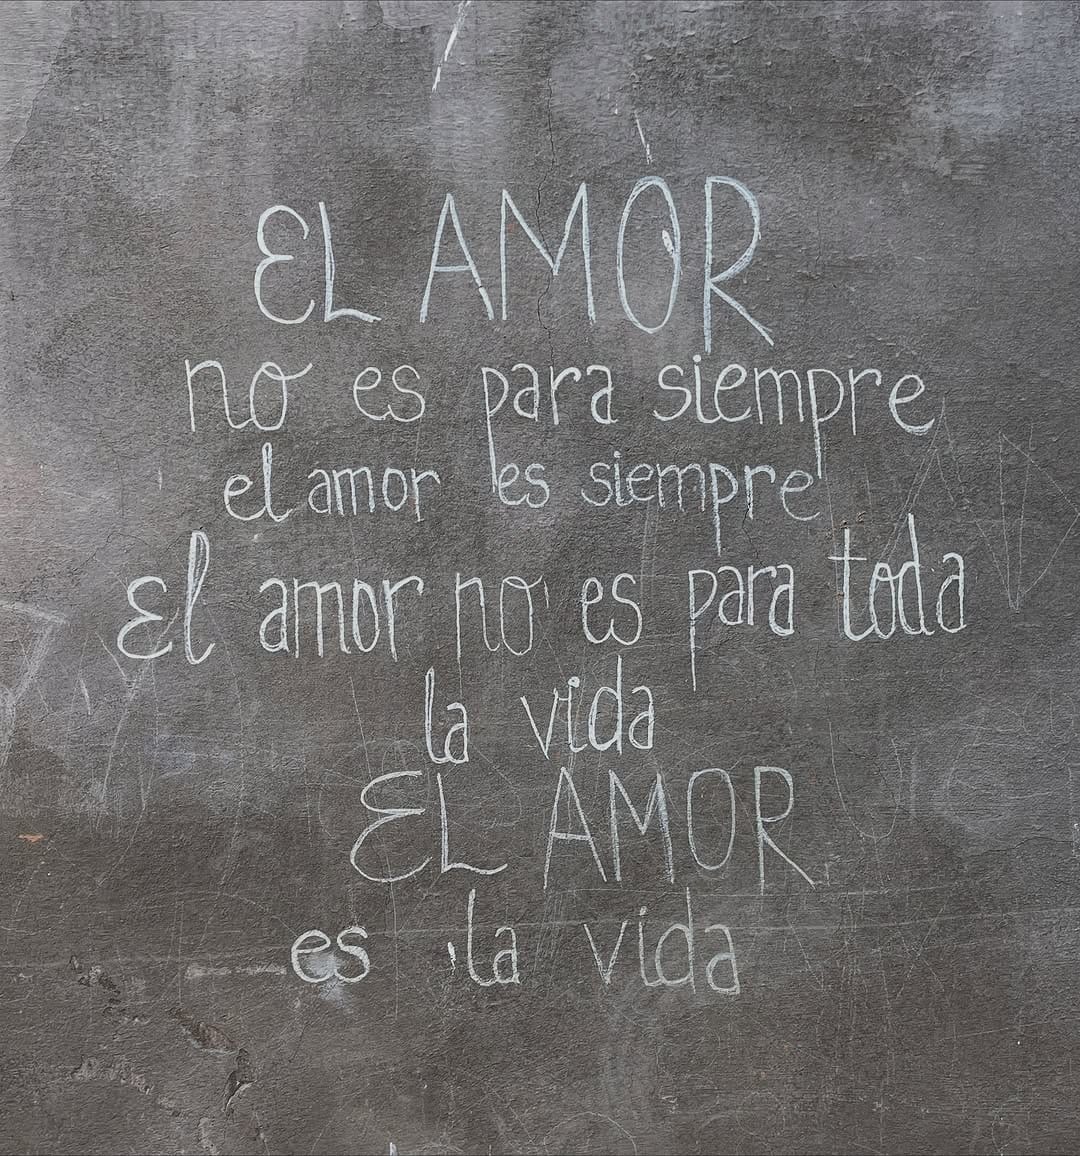 EL AMOR
no es para siempre
el amor es siempre
El amor no es para toda
la vida
EL AMOR
es la vida